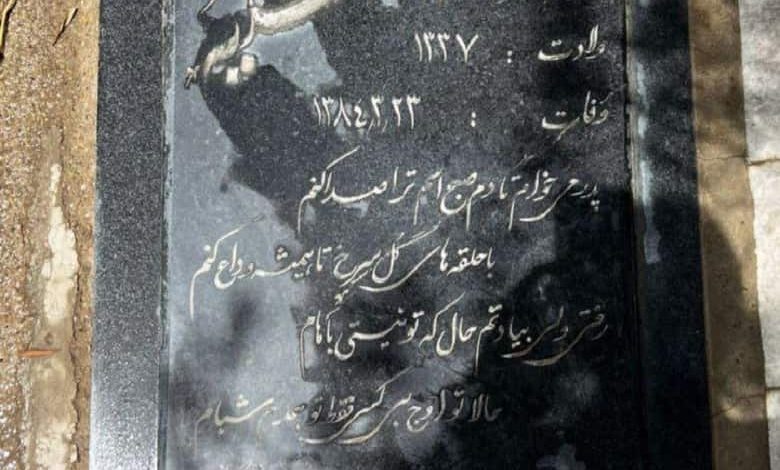 ولادت : ۱۳۳۷
وفات : ۱۳۸۴٫۳٫۲۳
پدر می خواهم تا دم صبح اسم ترا صدا کنم
با حلقه های گل سرخ تا همیشه وداع کنم
رفتی ولی بیادتم حال که تو نیستی باهام
حالا تو اوج بی کسی فقط تو بغض شبام